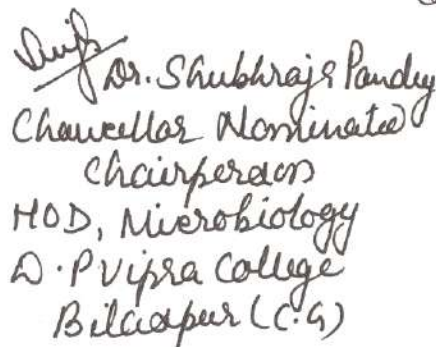 Dr. Shubhraja Pandey
Chancellor Nominated
Chairperson
HOD, Microbiology
D.P Vipra College
Bilaspur (C.G)